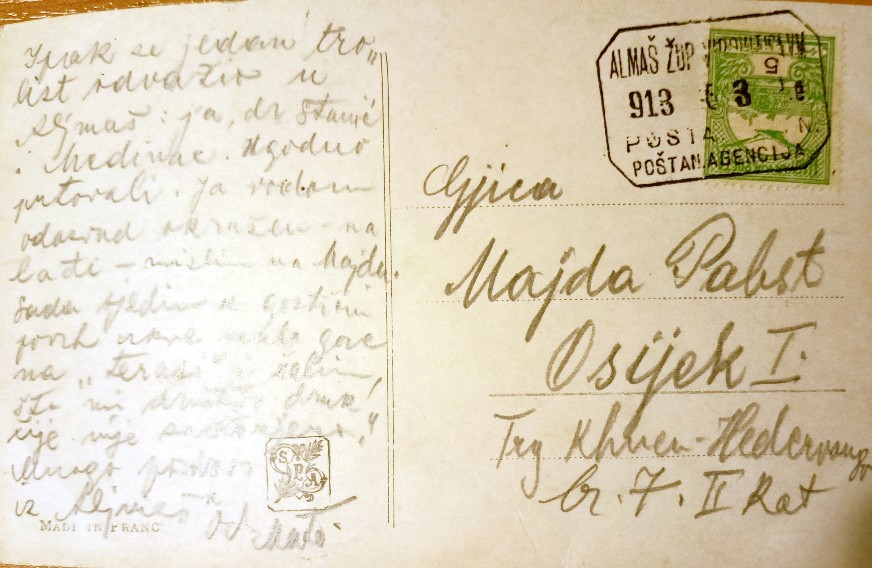 Ipak se jedan tro„
list odvažio u
Aljmaš: ja, dr Stanić
i Medinac. Ugodno
putovali. Ja vodom
odasvud okružen – na
lađi – mislim na Majdu.
Sada sjedim u gostioni
povrh crkve gore
na „terasi" i žalim,
što mi društvo druk„
čije nije sastavljeno."
Mnogo pozdrava
iz Aljmaša
od Mate
MADE IN FRANCE
SPA
ALMAŠ ŽUP
913 3
POŠTA N.
POŠTAN.AGENCIJA
5
Gjica
Majda Pabst
Osijek I.
Trg Khuen-Hedervary
br. 7. II Kat